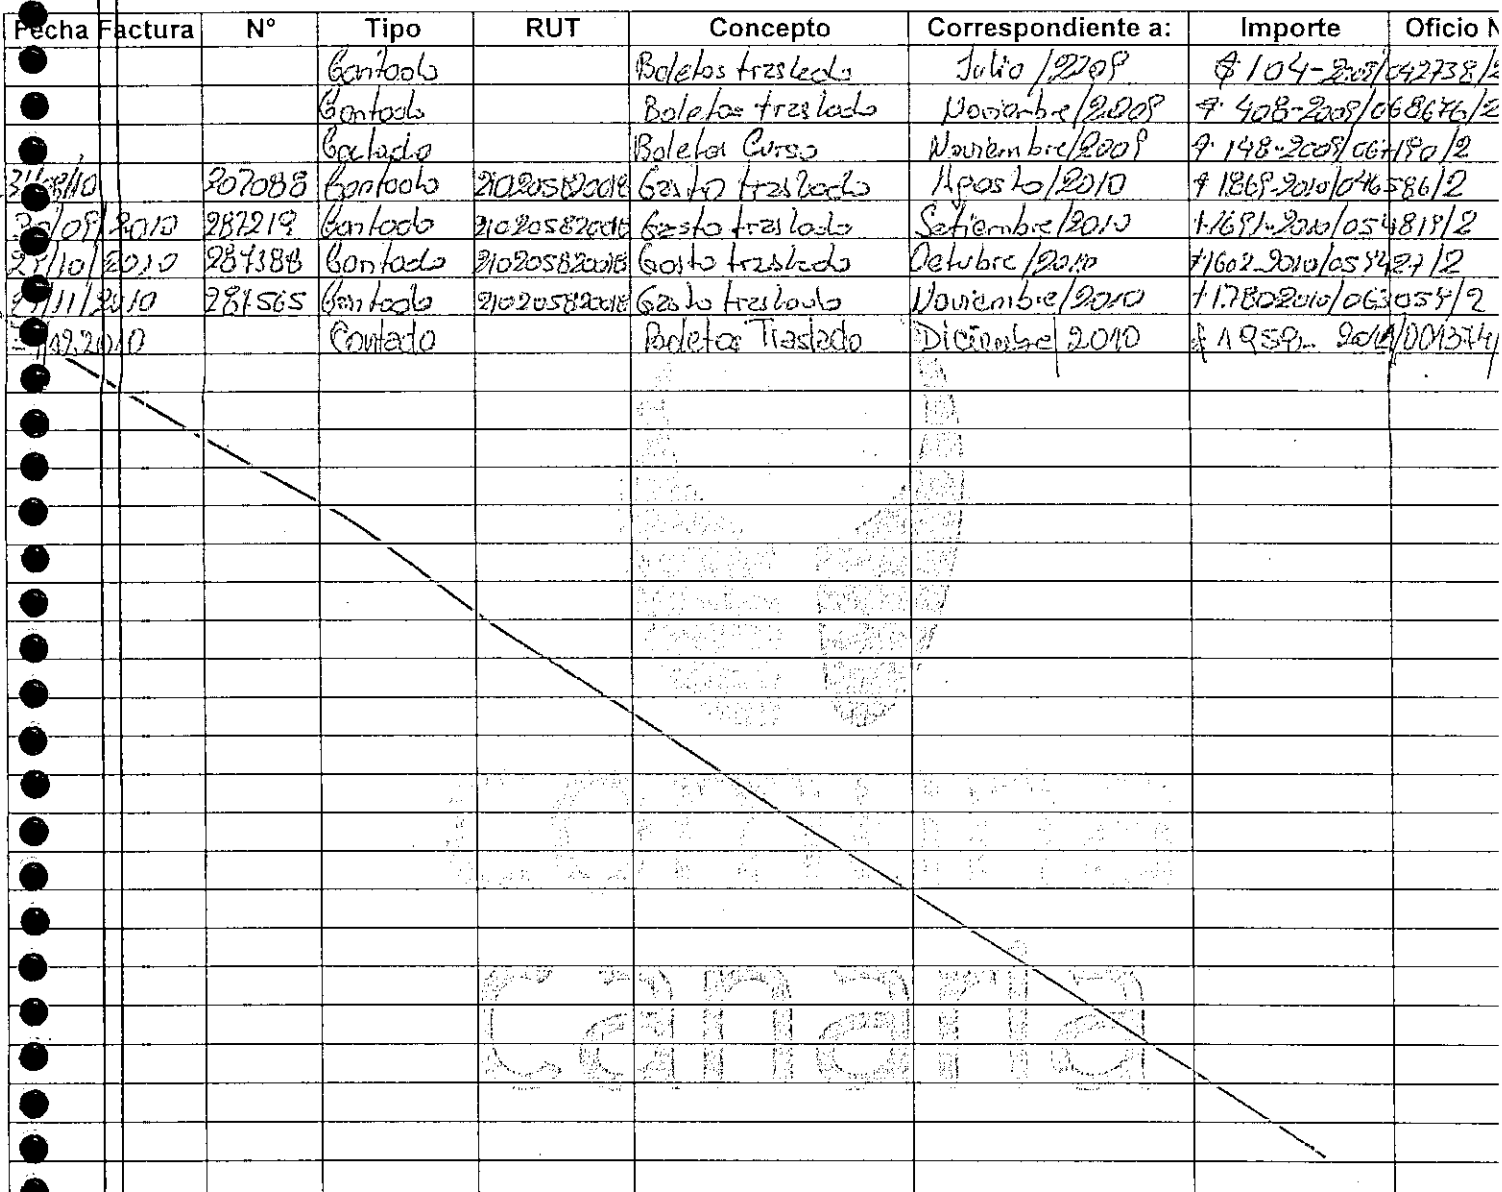 Fecha Factura N° Tipo RUT Concepto Correspondiente a: Importe Oficio N
Contado Boletos traslado Julio /2209 $ 104-2009/042738/2
Contado Boletos traslado Noviembre/2009 $ 408-2009/068676/2
Contado Boletos Curso Noviembre/2009 $ 148-2009/067190/2
31/08/10 207088 Contado 210205820018 Gasto traslado Agosto/2010 $ 1869-2010/046586/2
30/09/2010 287219 Contado 210205820018 Gasto traslado Setiembre/2010 $1691-2010/054819/2
10/2010 287388 Contado 210205820018 Gasto traslado Octubre/2010 $1602-2010/055427/2
11/2010 287565 Contado 210205820018 Gasto traslado Noviembre/2010 $1.780 2010/063059/2
12.2010 Contado Boletos Traslado Diciembre/2010 $ 1959- 2011/001374/
canaria